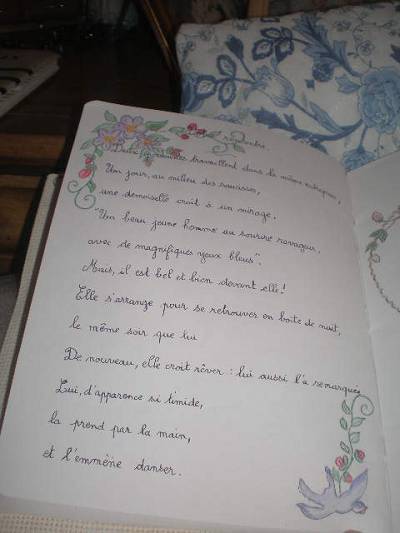 Rencontre.
Deux familles travaillent dans la même entreprise,
Un jour, au milieu des souvisson,
une demoiselle croit à un mirage.
"Un beau jeune homme au sourire ravageur,
avec de magnifiques yeux bleus".
Mais, il est bel et bien devant elle!
Elle s'arrange pour se retrouver en boîte de nuit,
le même soir que lui
De nouveau, elle croit rêver : lui aussi l'a remarquée
Lui, d'apparence si timide,
la prend par la main,
et l'emmène danser.